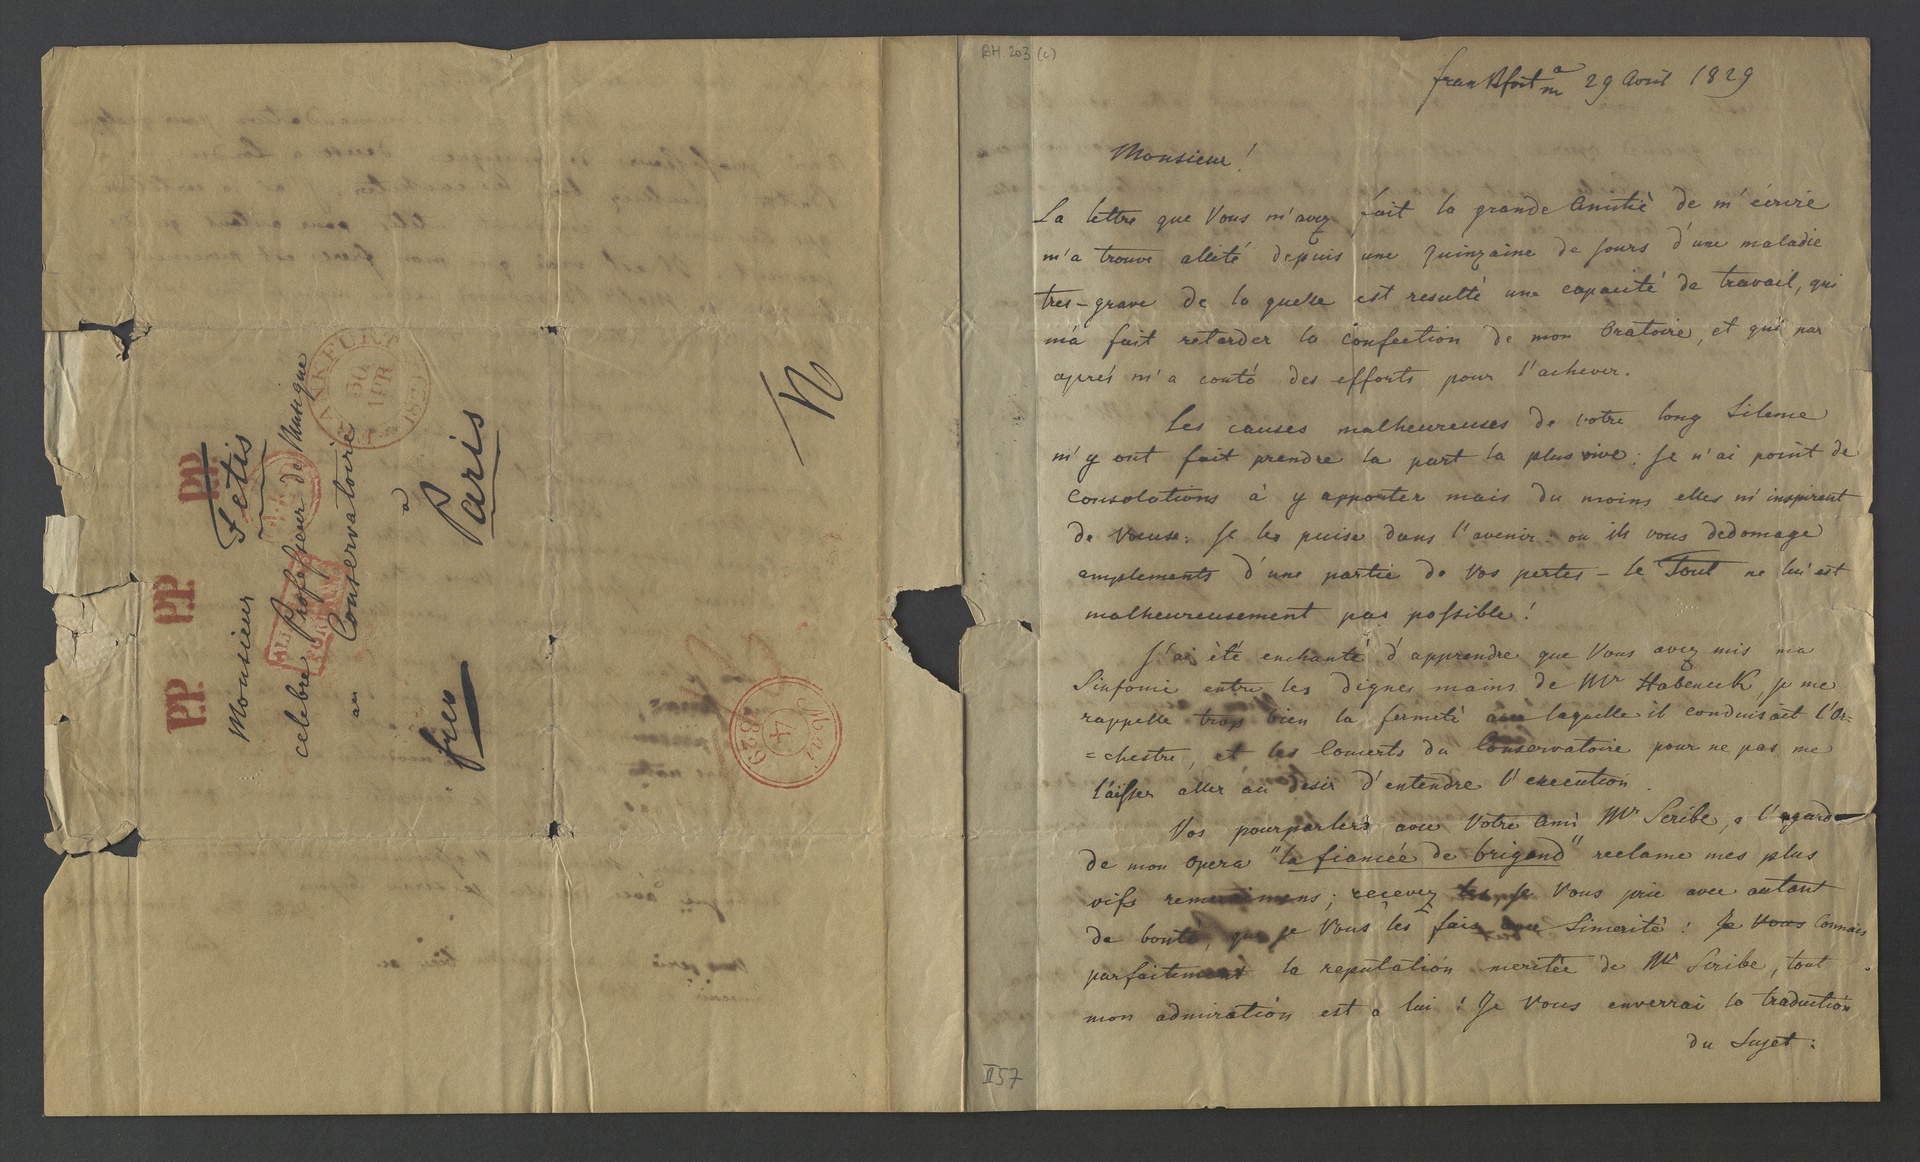 BH 203 (c)
frankfort a/m 29 Avril 1829
Monsieur!
La lettre que Vous m'avez fait la grande Amitié de m'écrire
m'a trouvé alité depuis une quinzaine de jours d'une maladie
tres-grave de la quelle est resulté une capacité de travail, qui
m'a fait retarder la confection de mon Oratoire, et qui par
après m'a couté des efforts pour l'achever.
Les causes malheureuses de votre long Silence
m'y ont fait prendre la part la plus vive. Je n'ai point de
Consolations à y apporter mais du moins elles m'inspirent
de Je les puise dans l'avenir. ou ils vous dedomage
amplements d'une partie de Vos pertes - le Tout ne lui est
malheureusement pas possible!
J'ai été enchanté d'apprendre que Vous avez mis ma
Sinfonie entre les dignes mains de Mr Habeneck, je me
rappelle trop bien la fermeté avec laquelle il conduisait l'Or=
=chestre, et les Concerts du Conservatoire pour ne pas me
laisser aller au desir d'entendre l'execution.
Vos pourparlers avec Votre Ami Mr Scribe, a l'egard
de mon opera "la fiancée de brigand" reclame mes plus
vifs remercimens; recevez les, je Vous prie avec autant
de bonté, que je Vous les fais avec Sincerité! Je vous Connais
parfaitement la reputation meritée de Mr Scribe, tout
mon admiration est a lui! Je Vous enverrai la traduction
du Sujet.
II 57
Monsieur Fetis
celebre Professeur de Musique
au Conservatoire
a
Paris
franco
P.P.
P.P.
P.P.
FRANKFURT
30
APR
1829